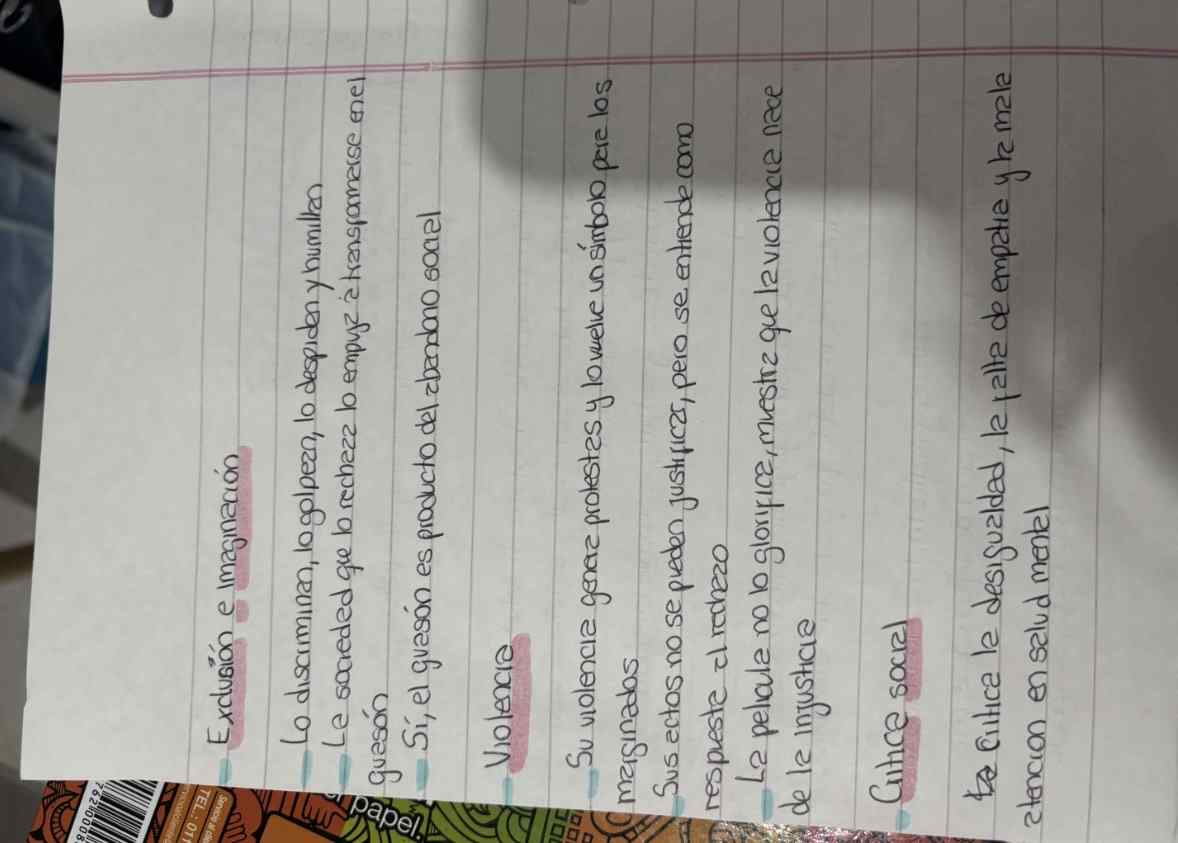 Exclusión e imaginación
Lo discriminan, lo golpean, lo despiden y humillan
La sociedad que lo rechaza lo empuja a transformarse en el
guasón
Sí, el guasón es producto del abandono social
Violencia
Su violencia genera protestas y lo vuelve un símbolo para los
marginados
Sus actos no se pueden justificar, pero se entiende como
respuesta al rechazo
La película no lo glorifica, muestra que la violencia nace
de la injusticia
Critica social
Critica la desigualdad, la falta de empatia y la mala
atencion en salud mental
papel.
TEL.: 011